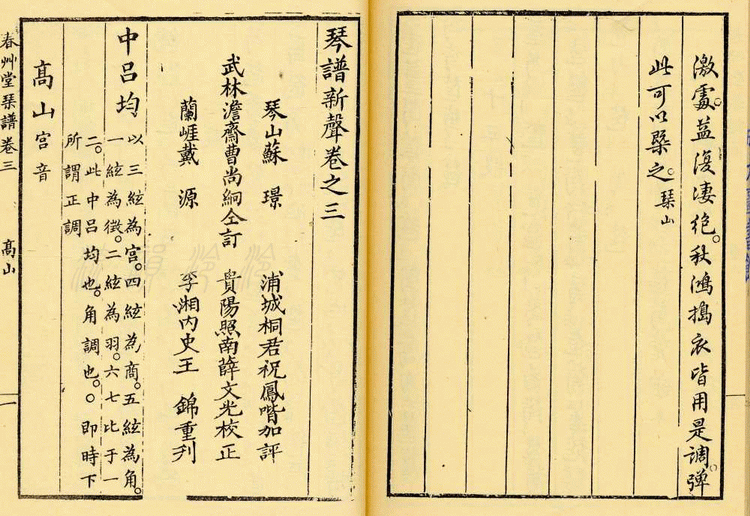 激處。益復淒絕。秋鴻搗衣皆用是調。彈
此可以槩之。琹山
琴譜新聲卷之三
琴山蘇 璟 浦城桐君祝鳳喈加評
武林澹齋曹尚絅仝訂 貴陽照南薛文光校正
蘭崖戴 源 湘內史王 錦重刊
中呂均 以三絃為宮。四絃為商。五絃為角。
一絃為徵。二絃為羽。六七比于一
二。此中呂均也。角調也。。即時下
所謂正調
髙山宮音
春艸堂琹譜卷三 髙山 一